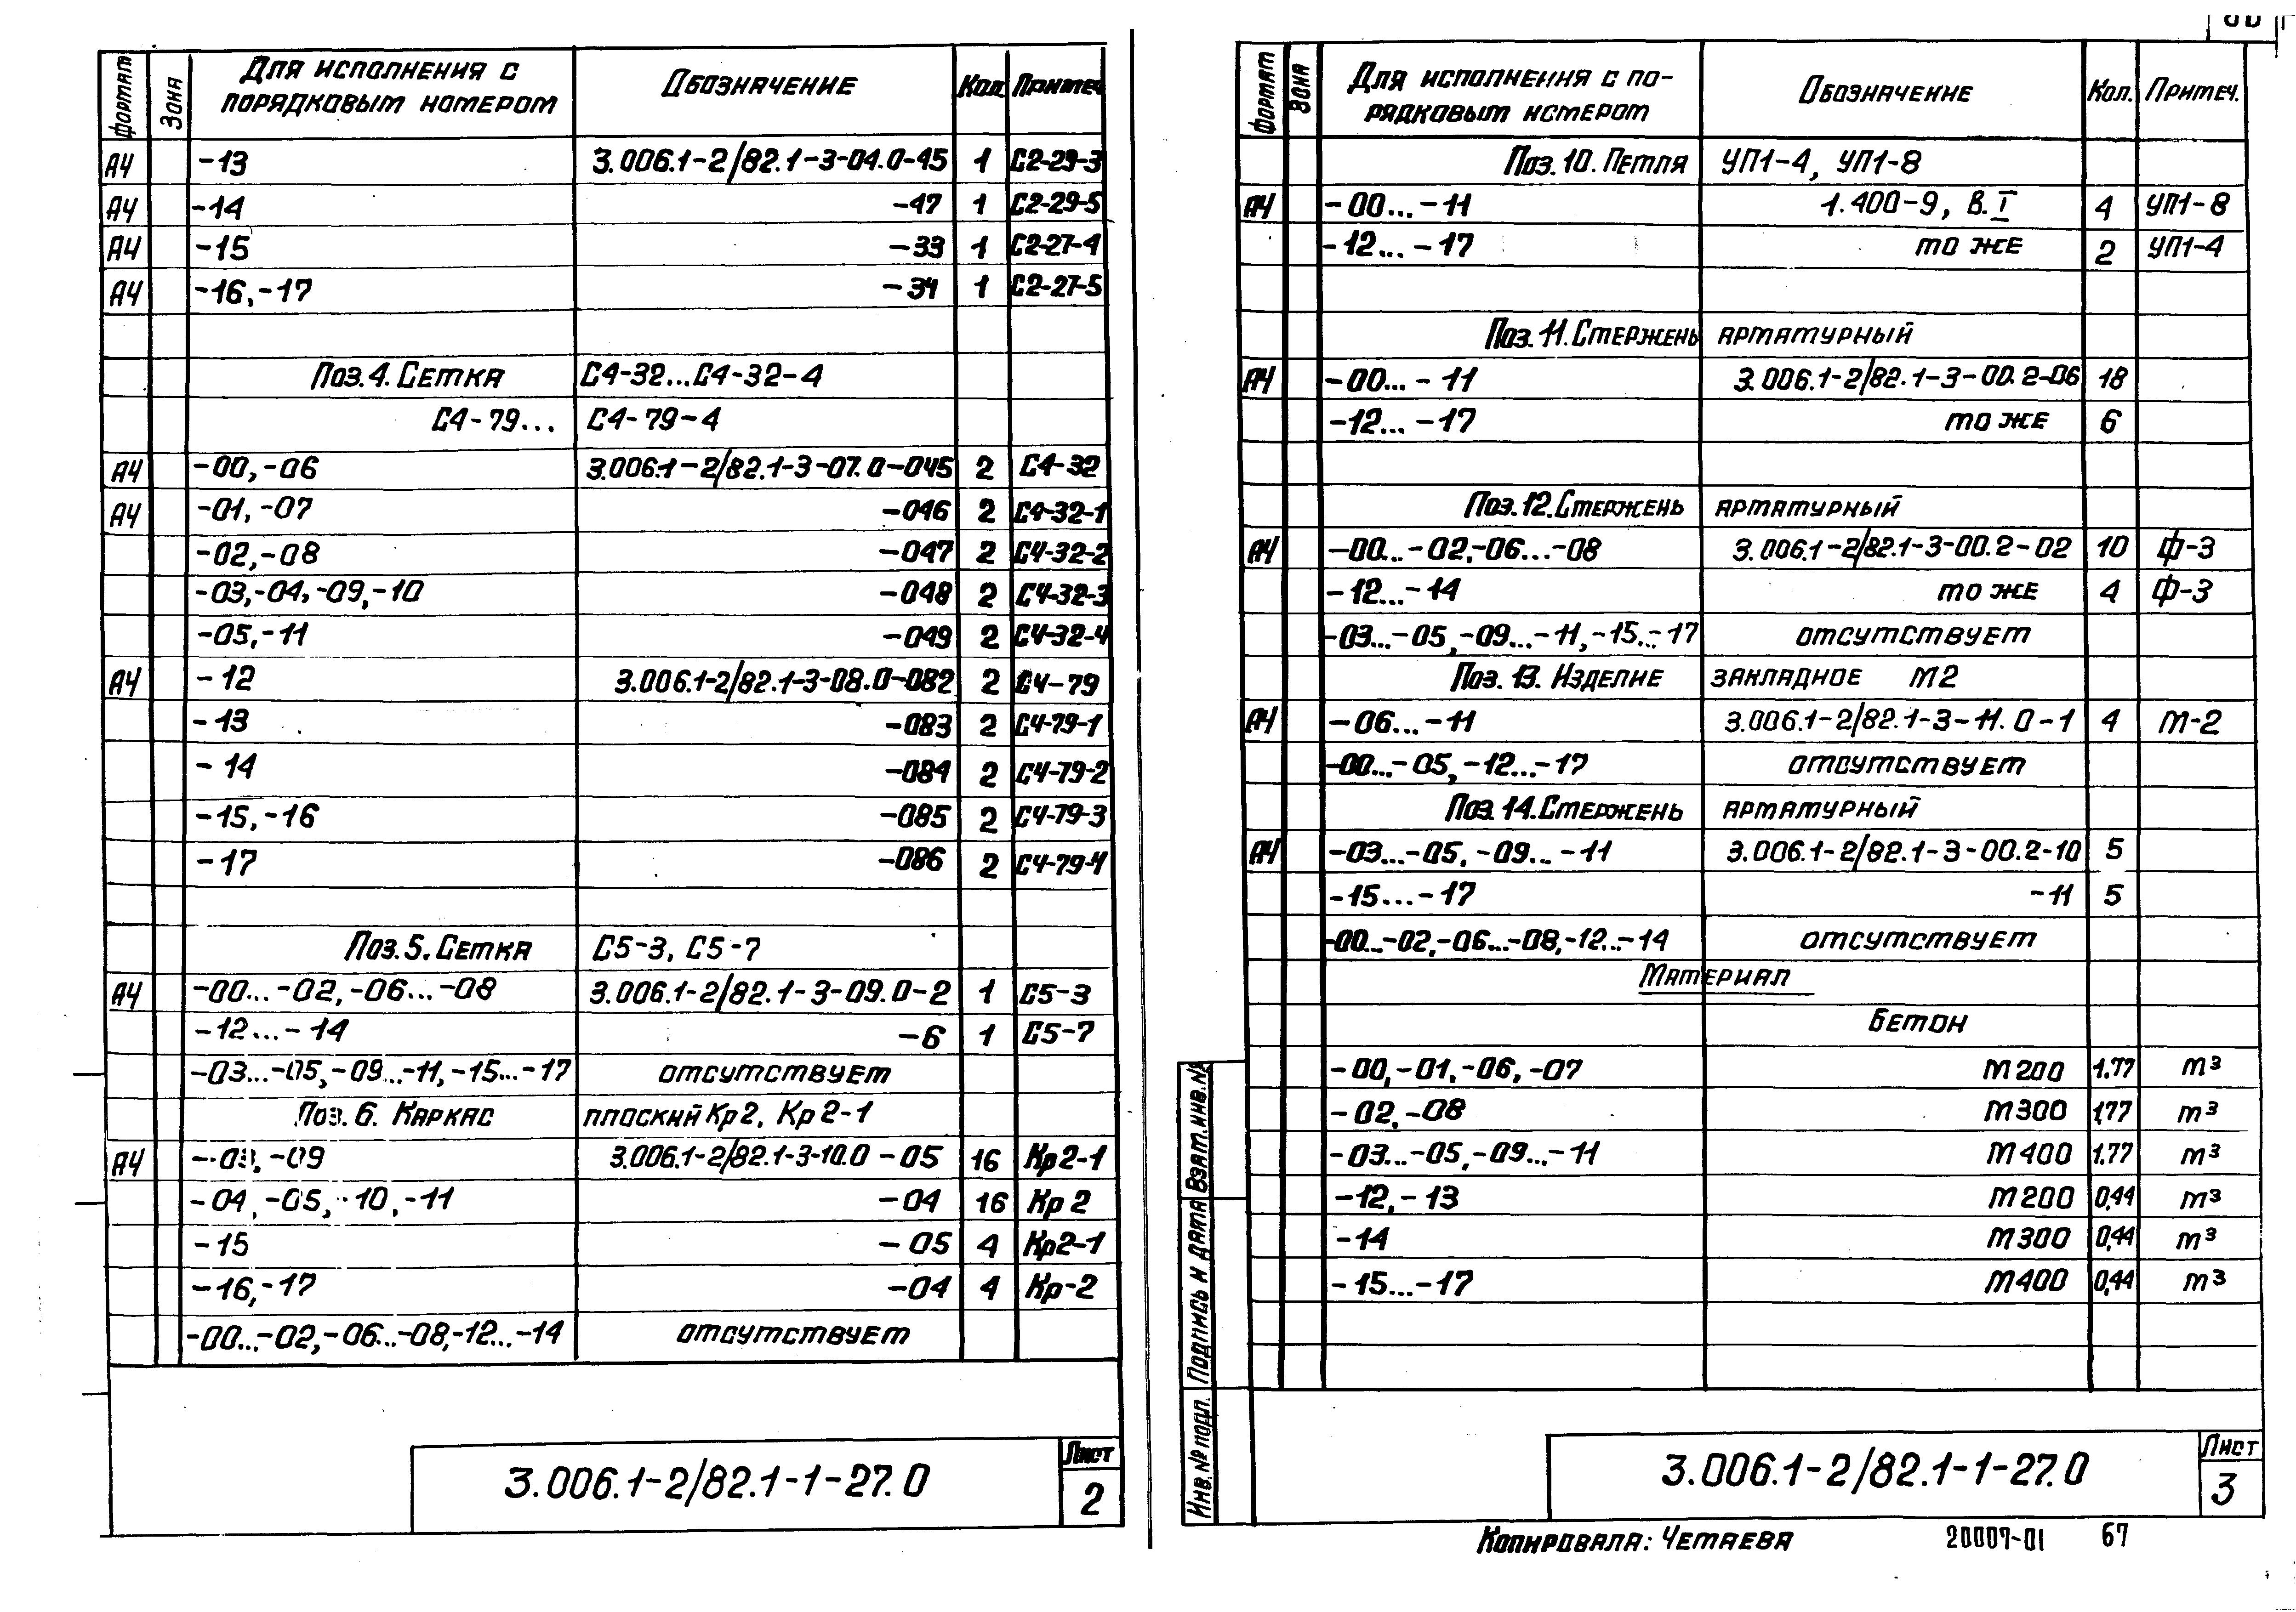 Формат Зона Для исполнения с порядковым номером Обозначение Кол. Примеч.
А4 -13 3.006.1-2/82.1-3-04.0-45 1 С2-29-3
А4 -14 -47 1 С2-29-5
А4 -15 -33 1 С2-27-4
А4 -16,-17 -34 1 С2-27-5
Поз.4. Сетка С4-32...С4-32-4
С4-79... С4-79-4
А4 -00,-06 3.006.1-2/82.1-3-07.0-045 2 С4-32
А4 -01,-07 -046 2 С4-32-1
-02,-08 -047 2 С4-32-2
-03,-04,-09,-10 -048 2 С4-32-3
-05,-11 -049 2 С4-32-4
А4 -12 3.006.1-2/82.1-3-08.0-082 2 С4-79
-13 -083 2 С4-79-1
-14 -084 2 С4-79-2
-15,-16 -085 2 С4-79-3
-17 -086 2 С4-79-4
Поз.5. Сетка С5-3, С5-7
А4 -00...-02,-06...-08 3.006.1-2/82.1-3-09.0-2 1 С5-3
-12...-14 -6 1 С5-7
-03...-05,-09...-11,-15...-17 отсутствует
Поз. 6. Каркас плоский Кр2, Кр2-1
А4 -03,-09 3.006.1-2/82.1-3-10.0-05 16 Кр2-1
-04,-05,-10,-11 -04 16 Кр 2
-15 -05 4 Кр2-1
-16,-17 -04 4 Кр-2
-00...-02,-06...-08,-12...-14 отсутствует
3.006.1-2/82.1-1-27.0 Лист 2
Формат Зона Для исполнения с по-
рядковым номером Обозначение Кол. Примеч.
Поз.10. Петля УП1-4, УП1-8
А4 -00...-11 1.400-9, В.I 4 УП1-8
-12...-17 то же 2 УП1-4
Поз.11. Стержень арматурный
А4 -00...-11 3.006.1-2/82.1-3-00.2-06 18
-12...-17 то же 6
Поз.12. Стержень арматурный
А4 -00...-02,-06...-08 3.006.1-2/82.1-3-00.2-02 10 Ф-3
-12...-14 то же 4 Ф-3
-03...-05,-09...-11,-15...-17 отсутствует
Поз. 13. Изделие закладное М2
А4 -06...-11 3.006.1-2/82.1-3-11.0-1 4 М-2
-00...-05,-12...-17 отсутствует
Поз.14. Стержень арматурный
А4 -03...-05,-09...-11 3.006.1-2/82.1-3-00.2-10 5
-15...-17 -11 5
-00...-02,-06...-08,-12...-14 отсутствует
Материал
Бетон
-00,-01,-06,-07 М200 1.77 м³
-02,-08 М300 1,77 м³
-03...-05,-09...-11 М400 1.77 м³
-12,-13 М200 0,44 м³
-14 М300 0,44 м³
-15...-17 М400 0,44 м³
Инв.№ подл. Подпись и дата Взат.инв.№
3.006.1-2/82.1-1-27.0 Лист 3
Копировала: Четаева 20007-01 67